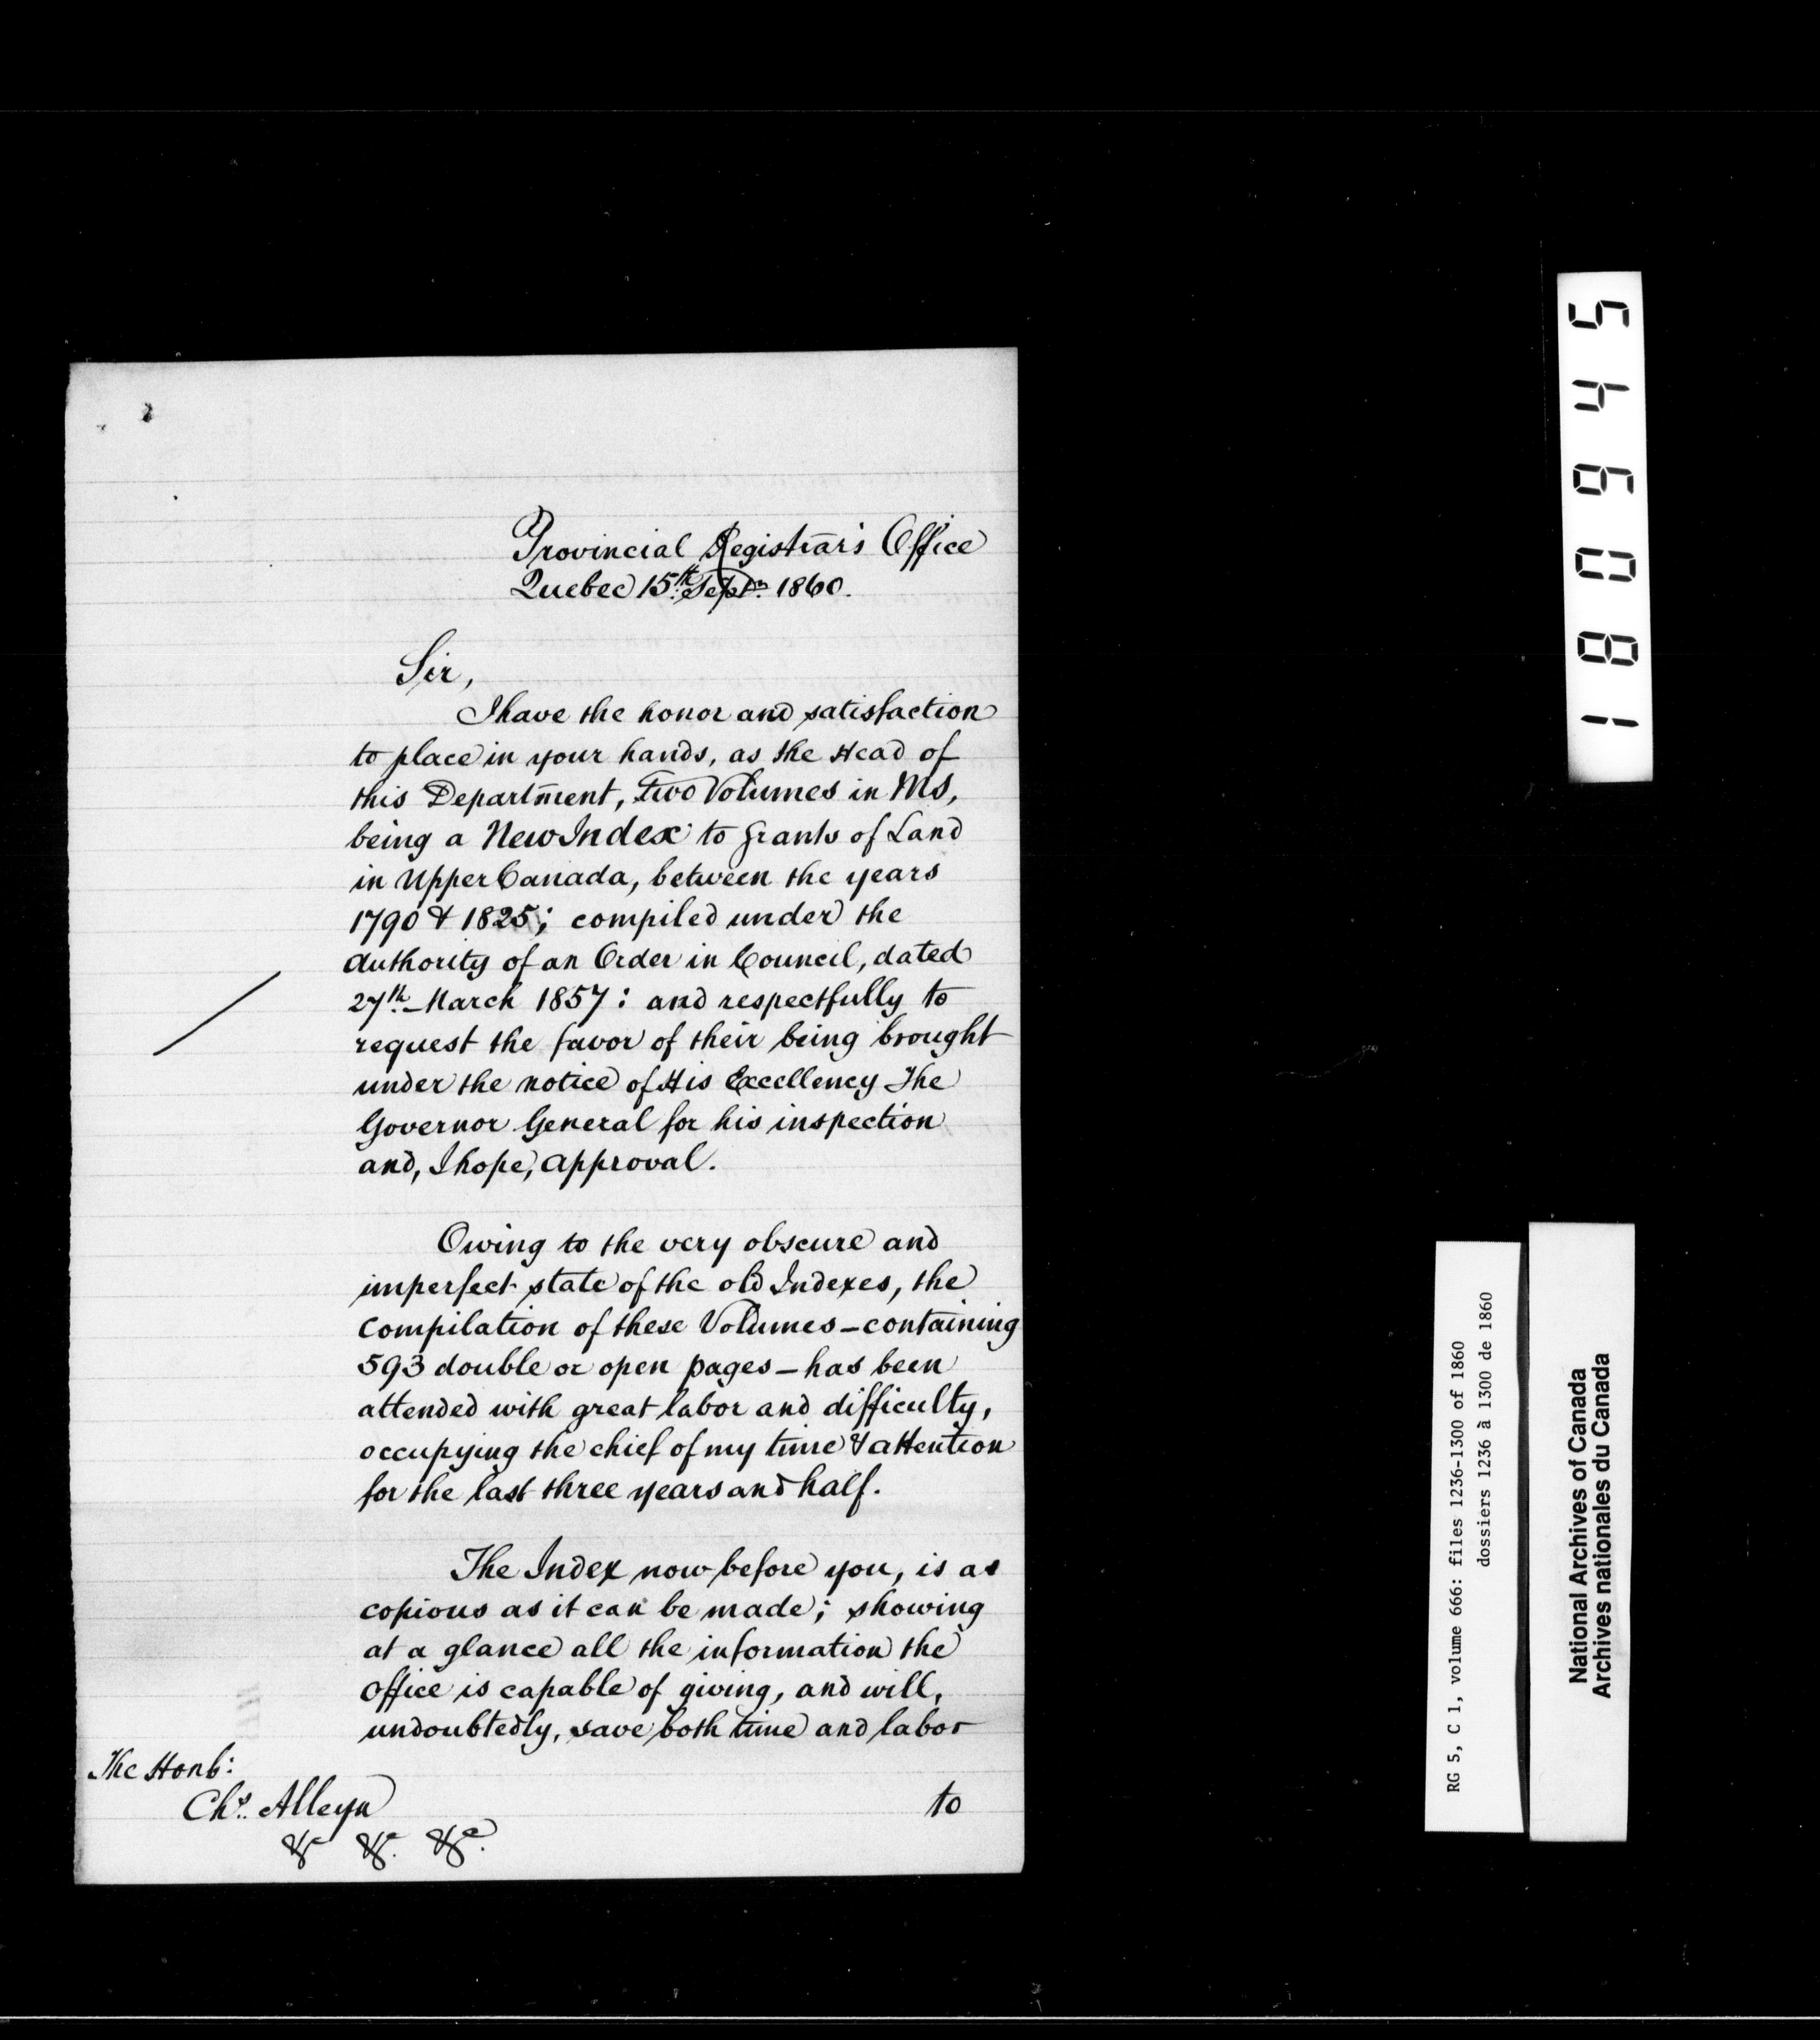 Provincial Registrar's Office
Quebec 15th Septr. 1860.
Sir,
I have the honor and satisfaction
to place in your hands, as the Head of
this Department, two Volumes in MS,
being a New Index to Grants of Land
in Upper Canada, between the years
1790 & 1825; compiled under the
authority of an Order in Council, dated
27th March 1857: and respectfully to
request the favor of their being brought
under the notice of His Excellency The
Governor General for his inspection
and, I hope, approval.
Owing to the very obscure and
imperfect state of the old Indexes, the
compilation of these Volumes – containing
593 double or open pages – has been
attended with great labor and difficulty,
occupying the chief of my time & attention
for the last three years and half.
The Index now before you, is as
copious as it can be made; showing
at a glance all the information the
office is capable of giving, and will,
undoubtedly, save both time and labor
to
The Honb:
Chs. Alleyn
&c &c. &c.
180945
RG 5, C 1, volume 666: files 1236-1300 of 1860
dossiers 1236 à 1300 de 1860
National Archives of Canada
Archives nationales du Canada